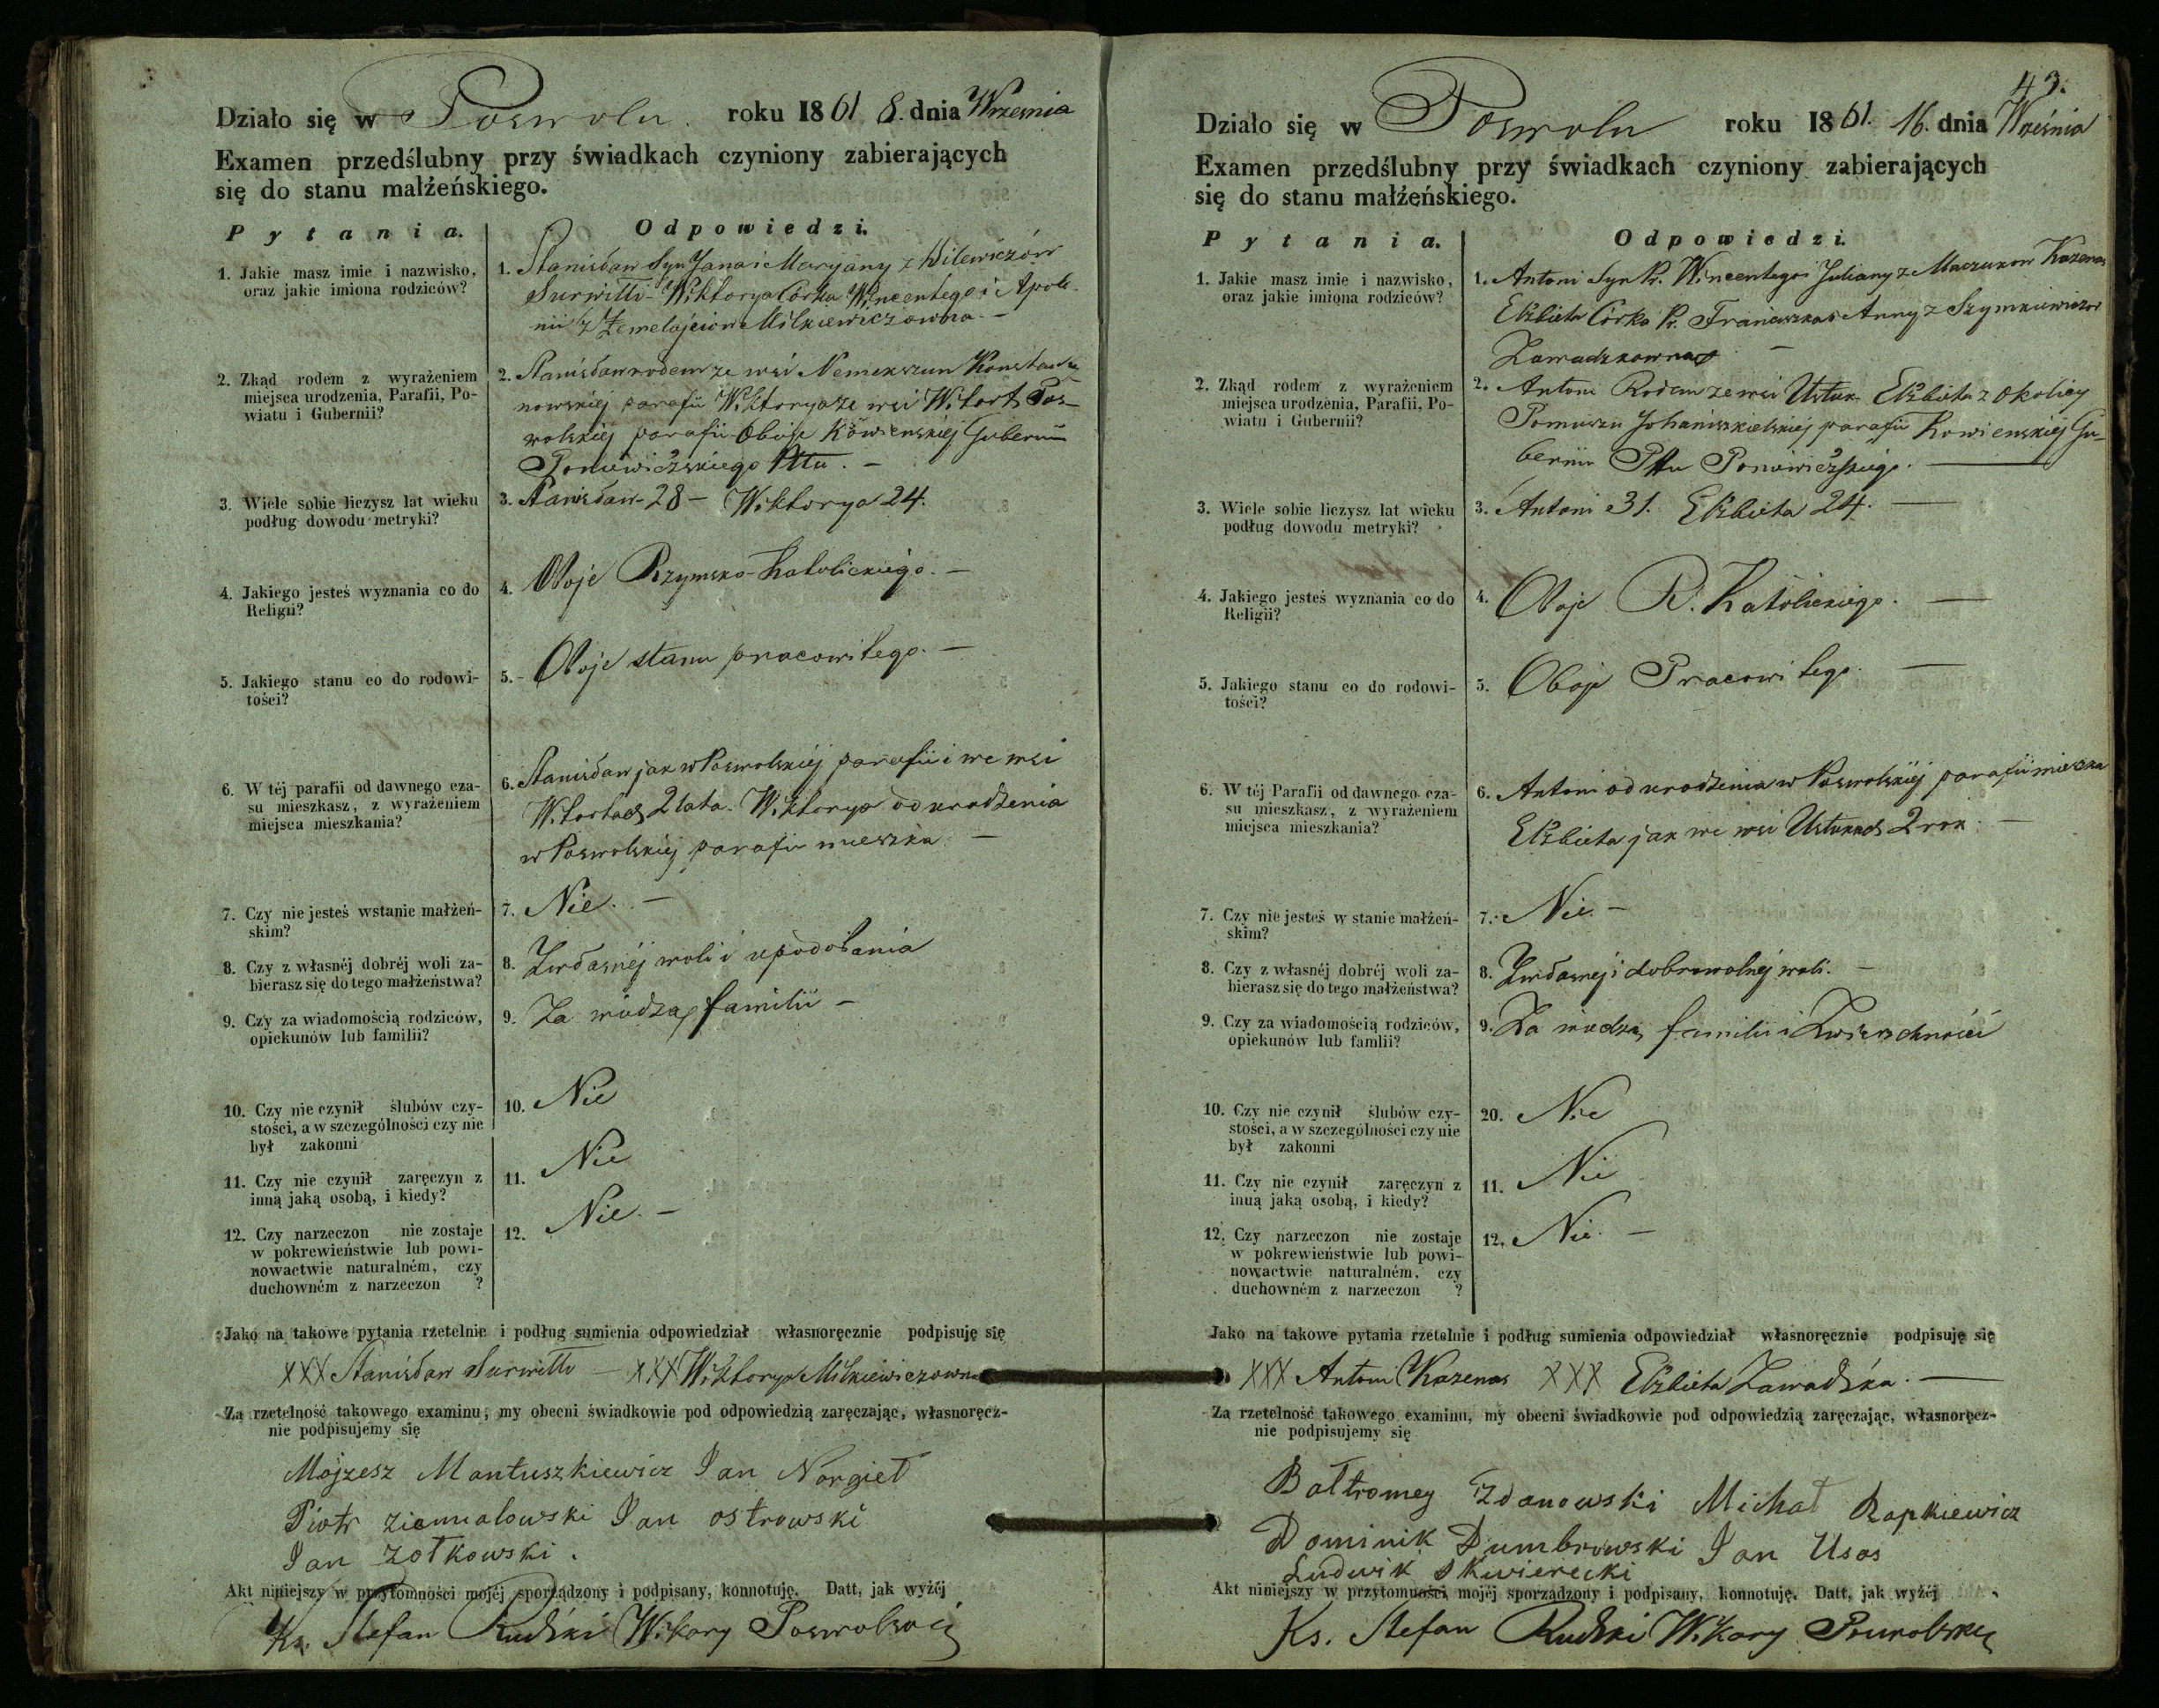 Działo się w Poswolu. roku 1861 8. dnia Wrzesnia
Examen przedślubny przy świadkach czyniony zabierających
się do stanu małżeńskiego.
Pytania. Odpowiedzi.
1. Jakie masz imie i nazwisko,
oraz jakie imiona rodziców?
1. Stanisław Syn Jana i Maryany z Wilewiczów
Surwiłło - Wiktorya Córka Wincentego i Apolo-
nii z Milkiewiczowna. -
2. Zkąd rodem z wyrażeniem
miejsca urodzenia, Parafii, Po-
wiatu i Gubernii?
2. Stanisław rodem ze wsi Nemekszun
nowskiéj parafii Wiktorya ze wsi Witort Pos-
wolskiéj parafii Oboje Kowienskiéj Gubernii
Poniewiéżskiego Pttu. -
3. Wiele sobie liczysz lat wieku
podług dowodu metryki?
3. Stanisław - 28 - Wiktorya 24.
4. Jakiego jesteś wyznania co do
Religii?
4. Oboje Rzymsko-Katolickiégo. -
5. Jakiego stanu co do rodowi-
tości?
5. - Oboje stanu pracowitego. -
6. W téj parafii od dawnego cza-
su mieszkasz, z wyrażeniem
miejsca mieszkania?
6. Stanisław jak w Poswolskiéj parafii i we wsi
Witortach 2 lata. Wiktorya od urodzenia
w Poswolskiéj parafii mieszka -
7. Czy nie jesteś wstanie małżeń-
skim?
7. Nie. -
8. Czy z własnéj dobréj woli za-
bierasz się do tego małżeństwa?
8. Zwłasnéj woli i upodobania
9. Czy za wiadomością rodziców,
opiekunów lub familii?
9. Za wiedzą familii -
10. Czy nie czynił ślubów czy-
stości, a w szczególności czy nie
był zakonni
10. Nie
11. Czy nie czynił zaręczyn z
inną jaką osobą, i kiedy?
11. Nie
12. Czy narzeczon nie zostaje
w pokrewieństwie lub powi-
nowactwie naturalném, czy
duchowném z narzeczon ?
12. Nie. -
Jako na takowe pytania rzetelnie i podług sumienia odpowiedział własnoręcznie podpisuję się
XXX Stanisław Surwiłło - XXX Wiktorya Milkiewiczowna
Za rzetelność takowego examinu, my obecni świadkowie pod odpowiedzią zaręczając, własnoręcz-
nie podpisujemy się
Mojzesz Mantuszkiewicz Jan Norgieł
Piotr Ziemialowski Jan ostrowski
Jan Zołkowski.
Akt niniejszy w przytomności mojéj sporządzony i podpisany, konnotuję. Datt, jak wyżéj
Ks. Stefan Rudzki Wikary Poswolski
43.
Działo się w Poswolu roku 1861. 16. dnia Września
Examen przedślubny przy świadkach czyniony zabierających
się do stanu małżeńskiego.
Pytania. Odpowiedzi.
1. Jakie masz imie i nazwisko,
oraz jakie imiona rodziców?
1. Antoni Syn Wincentego i Juliany z Maczukow Kazenas
Elżbieta Córka Franciszka i Anny z Szymkiewiczow
Zawadzkowna -
2. Zkąd rodem z wyrażeniem
miejsca urodzenia, Parafii, Po-
wiatu i Gubernii?
2. Antoni Rodem ze wsi Ustuk. Elżbieta z Okolicy
Pomuszu Johaniszkielskiéj parafii Kowienskiéj Gu-
bernii Pttu Poniewiéżskiégo.
3. Wiele sobie liczysz lat wieku
podług dowodu metryki?
3. Antoni 31. Elżbieta 24. -
4. Jakiego jesteś wyznania co do
Religii?
4. Oboje R. Katolickiégo. -
5. Jakiego stanu co do rodowi-
tości?
5. Oboje Pracowitego. -
6. W téj Parafii od dawnego cza-
su mieszkasz, z wyrażeniem
miejsca mieszkania?
6. Antoni od urodzenia w Poswolskiéj parafii mieszka
Elżbieta jak we wsi Ustukach 2 rok. -
7. Czy nie jesteś w stanie małżeń-
skim?
7. Nie. -
8. Czy z własnéj dobréj woli za-
bierasz się do tego małżeństwa?
8. Zwłasnéj i dobrowolnéj woli. -
9. Czy za wiadomością rodziców,
opiekunów lub famlii?
9. Za wiedzą familii i Zwierzchności
10. Czy nie czynił ślubów czy-
stości, a w szczególności czy nie
był zakonni
20. Nie
11. Czy nie czynił zaręczyn z
inną jaką osobą, i kiedy?
11. Nie
12. Czy narzeczon nie zostaje
w pokrewieństwie lub powi-
nowactwie naturalném, czy
duchowném z narzeczon ?
12. Nie. -
Jako na takowe pytania rzetelnie i podług sumienia odpowiedział własnoręcznie podpisuję się
XXX Antoni Kazenas XXX Elżbieta Zawadzka. -
Za rzetelność takowego examinu, my obecni świadkowie pod odpowiedzią zaręczając, własnoręcz-
nie podpisujemy się
Bałtromey Zdanowski Michał Rapkiewicz
Dominik Dumbrowski Jan Usas
Ludwik Skwierecki
Akt niniejszy w przytomności mojéj sporządzony i podpisany, konnotuję. Datt, jak wyżéj
Ks. Stefan Rudzki Wikary Poswolski